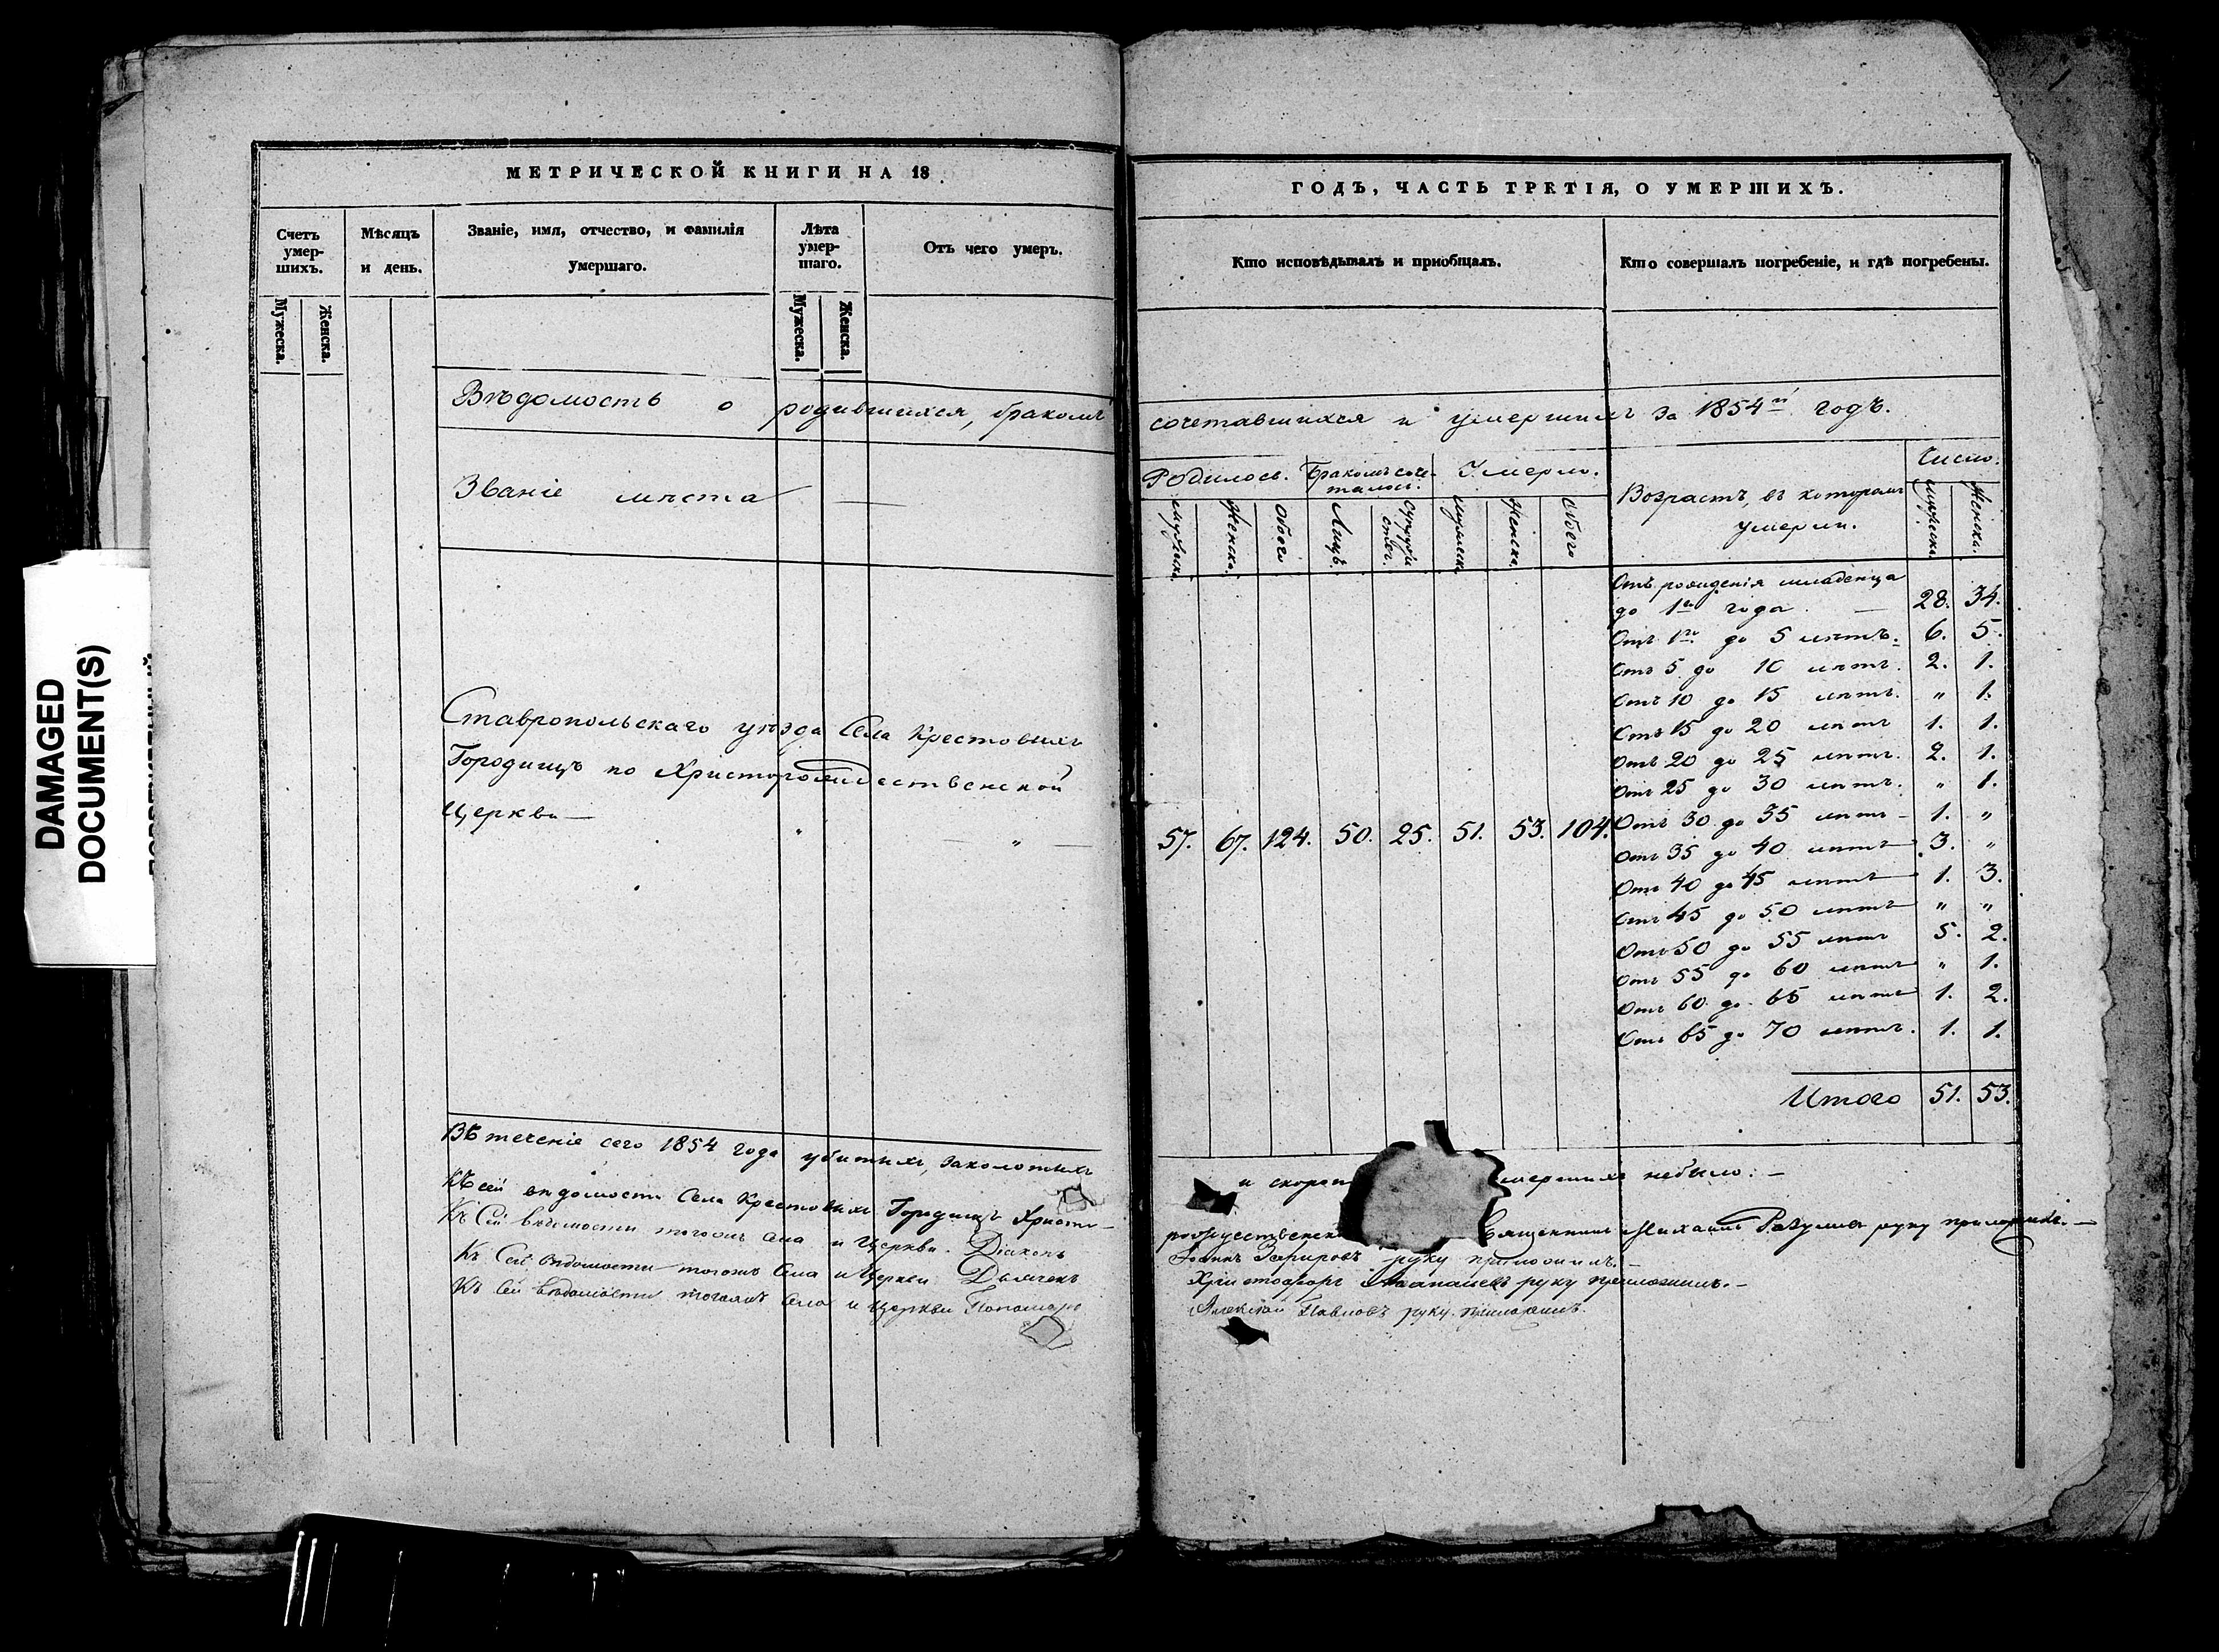 DAMAGED
DOCUMENT(S)
МЕТРИЧЕСКОЙ КНИГИ НА 18
Счетъ умер-шихъ.
Мѣсяцъ и день.
Званіе, имя, отчество, и фамилія умершаго.
Лѣта умер-шаго.
Отъ чего умеръ.
Мужеска.
Женска.
Мужеска.
Женска.
Вѣдомость о родившихся, бракомъ
Званіе мѣста
Ставропольскаго уѣзда Села Крестовыхъ
Городищъ по Христорождественской
Церкви —
Въ теченіе сего 1854 года убитыхъ, заколотыхъ
Къ сей вѣдомости Села Крестовыхъ Городищъ Христо-
Къ Сей вѣдомости тогожъ Села и Церкви Діаконъ
Къ Сей вѣдомости тогожъ Села и Церкви Дьячекъ
Къ сей вѣдомости тогожъ Села и Церкви Пономарь
ГОДЪ, ЧАСТЬ ТРЕТІЯ, О УМЕРШИХЪ.
Кто исповѣдывалъ и пріобщалъ.
Кто совершалъ погребеніе, и гдѣ погребены.
сочетавшихся и умершихъ за 1854й годъ.
Родилось. Бракомъ соче-талось. Умерло.
Возрастъ, въ которомъ умерли.
Число.
Мужеска. Женска. Обоего Лицъ. Супружествъ. Мужеска Женска. Обоего
Мужеска. Женска.
57. 67. 124. 50. 25. 51. 53. 104.
Отъ рожденія младенца
до 1го года — 28. 34.
Отъ 1го до 5 лѣтъ. 6. 5.
Отъ 5 до 10 лѣтъ. 2. 1.
Отъ 10 до 15 лѣтъ. " 1.
Отъ 15 до 20 лѣтъ 1. 1.
Отъ 20 до 25 лѣтъ. 2. 1.
Отъ 25 до 30 лѣтъ. " 1.
Отъ 30 до 35 лѣтъ - 1. "
Отъ 35 до 40 лѣтъ 3. "
Отъ 40 до 45 лѣтъ 1. 3.
Отъ 45 до 50 лѣтъ " "
Отъ 50 до 55 лѣтъ 5. 2.
Отъ 55 до 60 лѣтъ " 1.
Отъ 60 до 65 лѣтъ 1. 2.
Отъ 65 до 70 лѣтъ. 1. 1.
Итого 51. 53.
и скороп мершихъ небыло. —
рождественск Священникъ Михаилъ руку приложилъ. —
Іоаннъ Зефировъ руку приложилъ. —
Христофоръ руку приложилъ. —
Алексѣй Павловъ руку приложилъ.